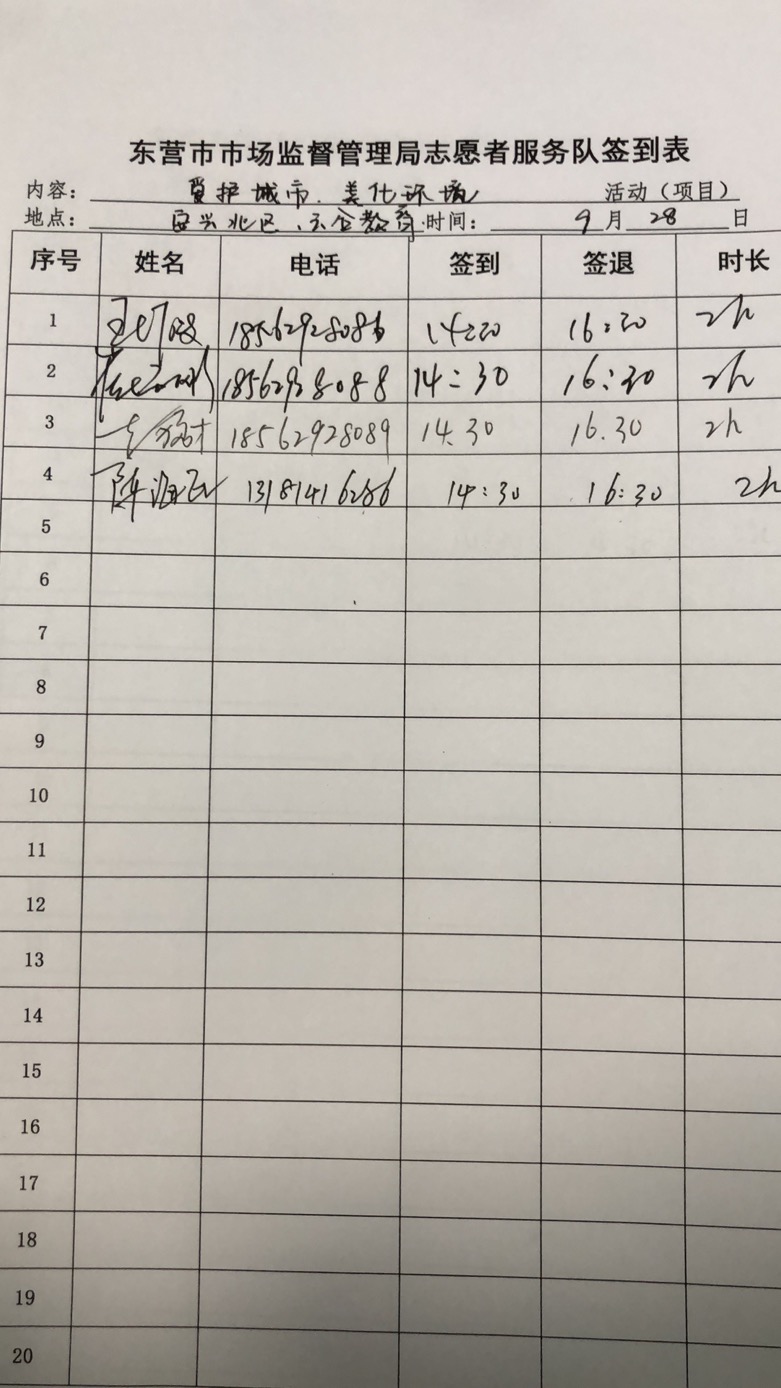 东营市市场监督管理局志愿者服务队签到表
内容： 爱护城市、美化环境 活动（项目）
地点： 安兴北区、 教育 时间： 9 月 28 日
序号 姓名 电话 签到 签退 时长
1 18562928086 14:30 16:30 2h
2 18562928088 14:30 16:30 2h
3 18562928089 14.30 16.30 2h
4 13181416286 14:30 16:30 2h
5
6
7
8
9
10
11
12
13
14
15
16
17
18
19
20